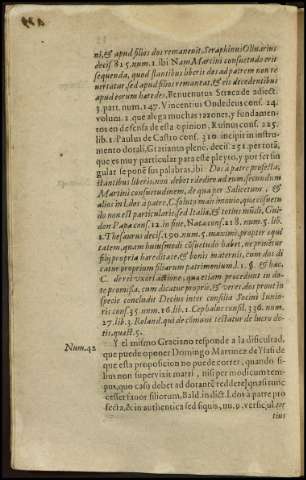 ni, & apud filios dos remanenit. Seraphinus Oliuarius
decis. 815. num. 1. ibi Nam Martini consuetudo erit
sequenda, quod stantibus liberis dos ad patrem non re
uertatur, sed apud filios remaneat, & eis decedentibus
apud eorum haredes, Benuenutus Straca de adiect.
3. part. num. 147. Vincentius Ondedeus cons. 24.
volum. 2. que alega muchas razones, y fundamen-
tos en defensa de esta opinion, Rufinus cons. 225.
lib. 1. Paulus de Castro cons. 310. incipit in instru-
mento dotali, Gratiano plenè, decis. 251. per totã,
que es muy particular para este pleyto, y por ser sin
gular se ponẽ sus palabras, ibi: Dos à patre profecta,
stantibus liberis, non debet redire ad eum, secundum
Martini consuetudinem, de qua per Salicetum, &
alios in l. dos à patre, C. soluto matrimonio, quæ consuetu
do non est particularis, sed Italiæ, & totius mũdi, Gui-
don Papæ cons. 12. in fine, Nata cons. 218. num. 5. lib.
2. Thesaurus decis. 190. num. 5. maximè propter equi
tatem, quam huiusmodi cõsuetudo habet, ne priuẽtur
filij propria hæreditate, & bonis maternis, cum dos di
catur proprium filiarum patrimonium l. 1. §. & hæc
C. de rei vxoriæ actione, quæ etiam procedunt in do-
te promissa, cum dicatur propriè, & verè dos prout in
specie concludit Decius inter consilia Socini Iunio-
ris cons. 35. num. 16. lib. 1. Cephalus consil. 336. num.
27. lib. 3. Roland. qui de cõmuni testatur de lucro do-
tis, quæst. 5.
Num. 42 Y el mismo Graciano responde a la dificultad,
que puede oponer Domingo Martinez de Ysasi de
que esta proposicion no puede correr, quando fi-
lius non superuixit matri, nisi per modicum tem-
pus, quo casu debet ad dotantẽ reddere, quasi nunc
cesset fauor filiorum. Bald. in dict. l. dos à patre pro
fecta, & in authentica sed si quis, nu. 9. versicul. ter
tius